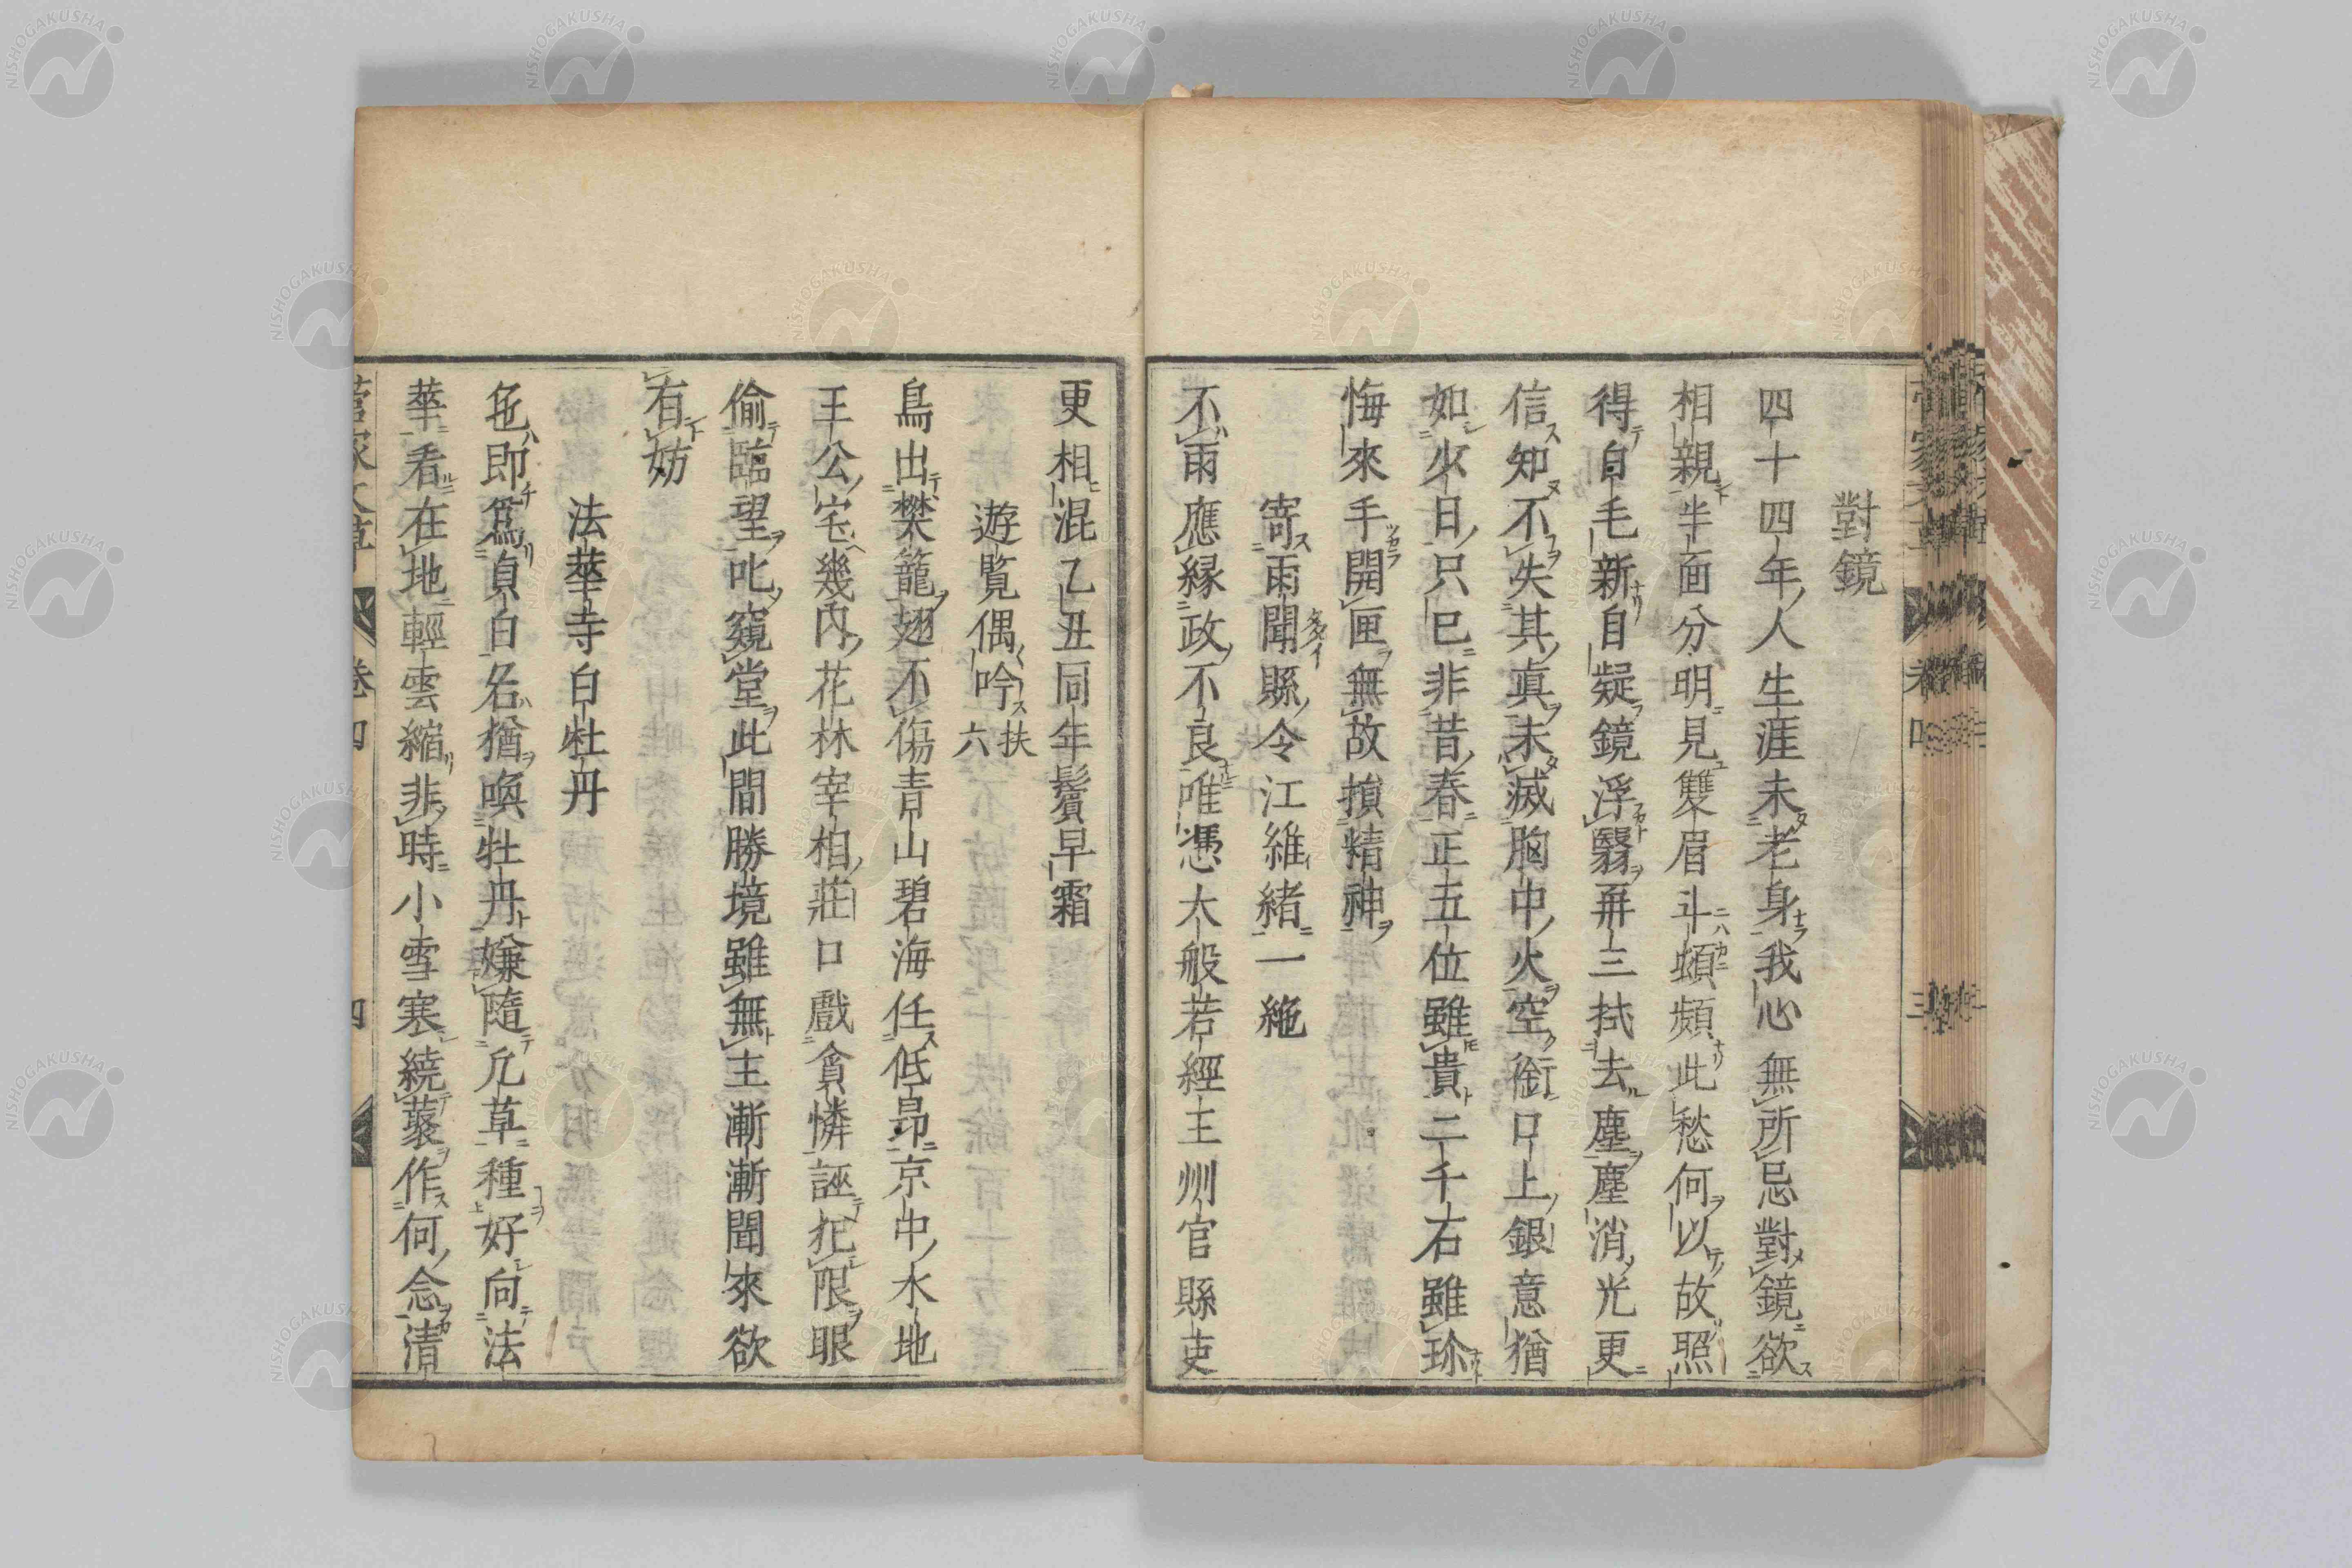 對鏡
四十四年人生涯未老身我心無所忌對鏡欲
相親半面分明見雙眉斗頔頻此愁何以故照
得白毛新自疑鏡浮翳再三拭去塵塵消光更
信知不失其眞未滅胸中火空銜口上銀意猶
如少日只已非昔春正五位雖貴二千石雖珎
悔來手開匣無故損精神
寄雨聞縣令江維緒一絶
不雨應縁政不良唯憑大般若經王州官縣吏
更相混乙丑同年鬢早霜
遊覧偶吟 扶六
鳥出樊籠翅不傷青山碧海任低昂京中水地
王公宅幾内花林宰相莊口戲貪憐誣犯限眼
偷臨望叱窺堂此間勝境雖無主漸漸聞來欲
有妨
法華寺白牡丹
色即爲貞白名猶喚牡丹嫌隨凢草種好向法
華看在地輕雲縮非時小雪寒繞藂作何念清
菅家文草 卷四 四